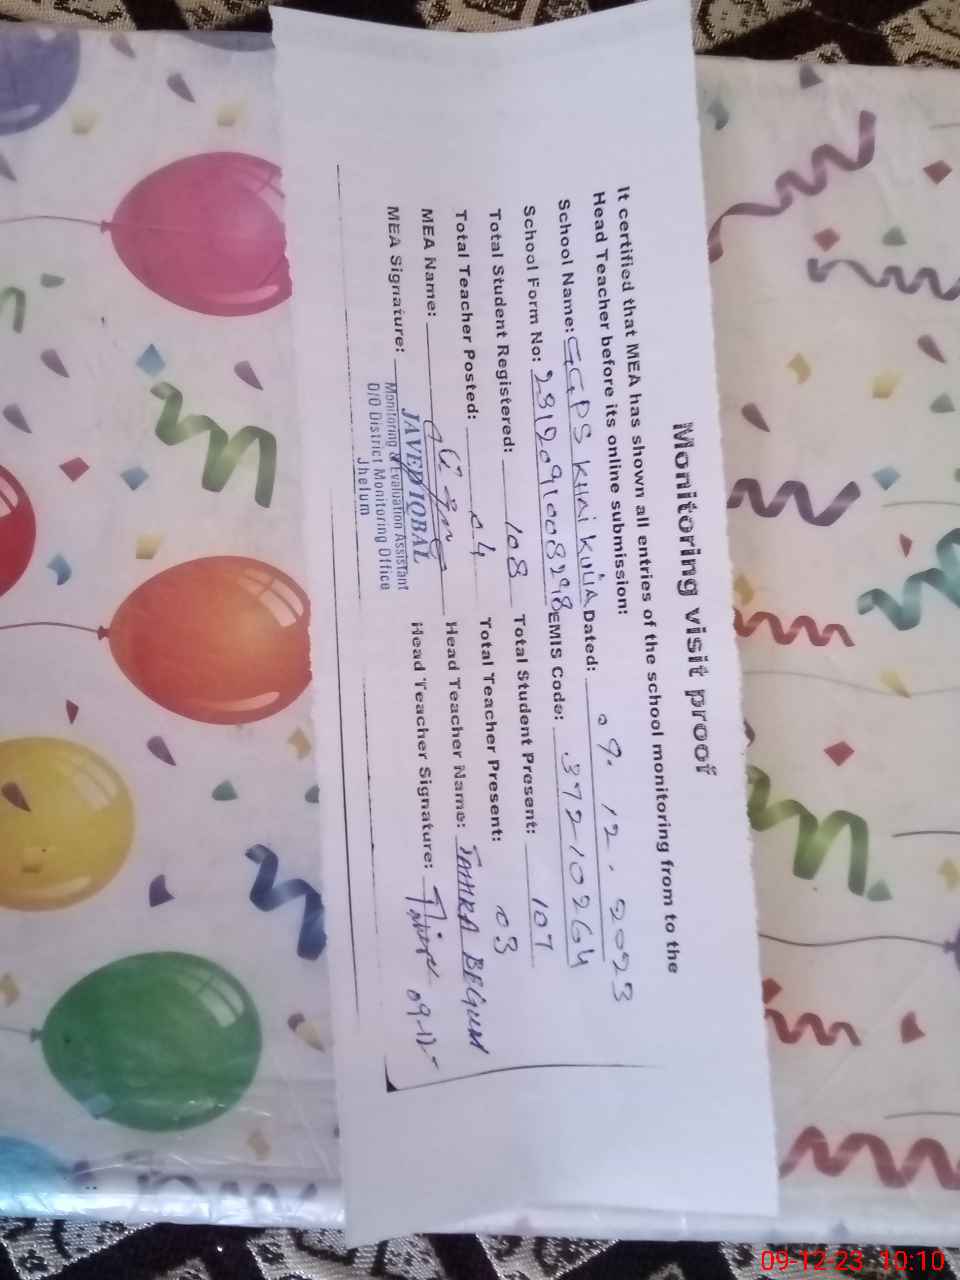 Monitoring visit proof
It certified that MEA has shown all entries of the school monitoring from to the
Head Teacher before its online submission:
School Name: GGPS KHAI KOLIA Dated: 09.12.2023
School Form No: EMIS Code: 37210264
Total Student Registered: 108 Total Student Present: 107
Total Teacher Posted: 04 Total Teacher Present: 03
MEA Name: Head Teacher Name: TAHIRA BEGUM
MEA Signature: JAVED IQBAL Head Teacher Signature: 09-12-
Monitoring & Evaluation Assistant
O/O District Monitoring Office
Jhelum
09-12-23 10:10